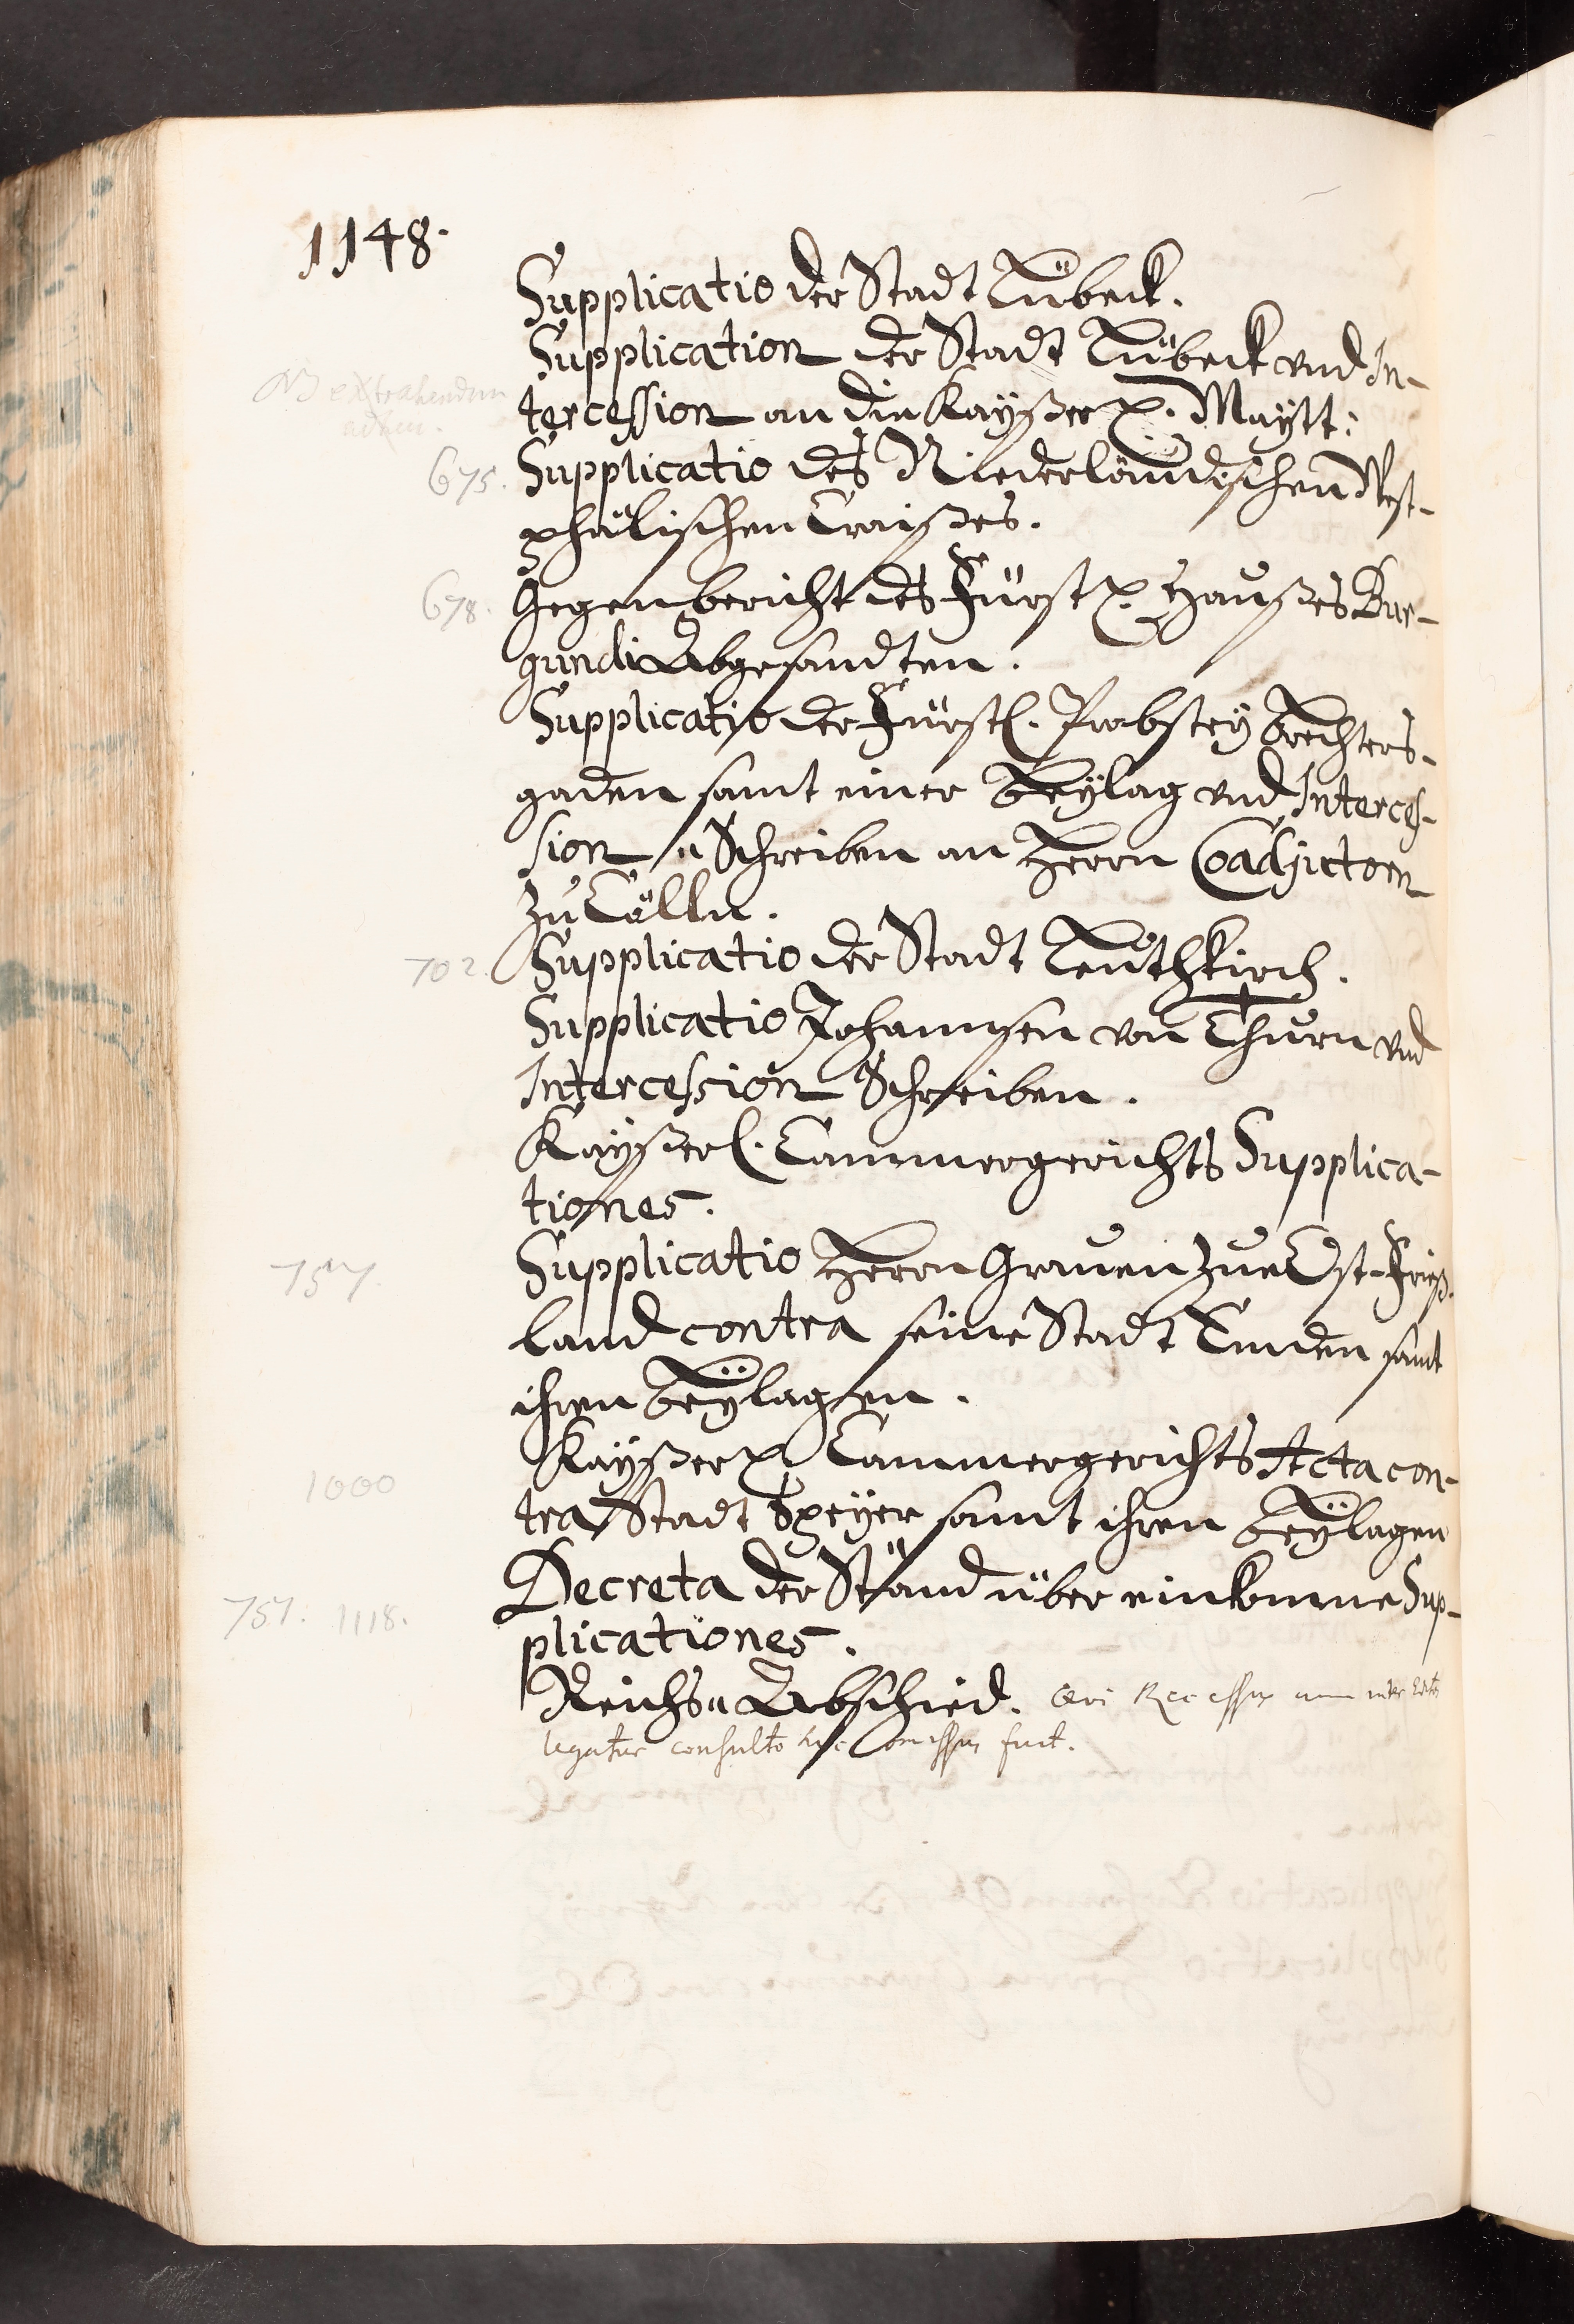 1148.
Supplicatio der Stadt Lübeck.
Supplication der Stadt Lübeck vnd In-
NB extrahendum
tercession an die Kayßerl. Maytt:
675. Supplicatio des Niederländischen West-
phälischen Craißes.
678. Gegenbericht des Fürstl. Haußes Bur-
gundi Abgesandten.
Supplicatio der Fürstl. Probstey Brechters-
gaden samt einer Beylag vnd Interces-
sion „ Schreiben an Herrn Coadjutorn
zu Cölln.
702. Supplicatio der Stadt Leuthkirch.
Supplicatio Johannsen von Thurn vnd
Intercession Schreiben.
Kayßerl. Cammergerichts Supplica-
tiones.
757. Supplicatio Herrn Grauen zue Ost-Frieß-
land contra seine Stadt Emden samt
ihren Beylagen.
1000 Kayßerl. Cammergerichts Acta con-
tra Stadt Speyer samt ihren Beylagen
751. 1118. Decreta der Ständ über einkomne Sup-
plicationes.
Reichs„ Abschied. Recessus
legatur consulto hic omissus fuit.